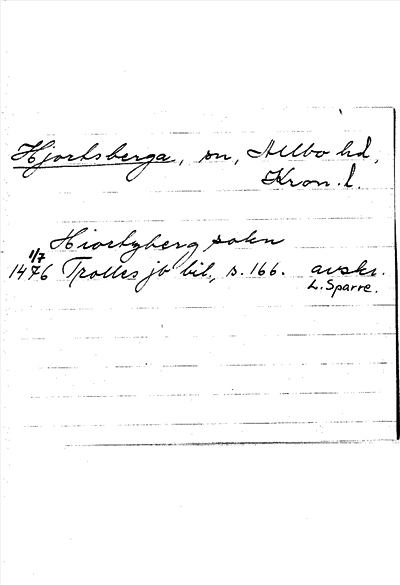 Hjortsberga, sn, Allbo hd,
Kron. l.
Hiortzberg sokn
1/7
1476 Trolles jb bil, s. 166. avskr.
L. Sparre.